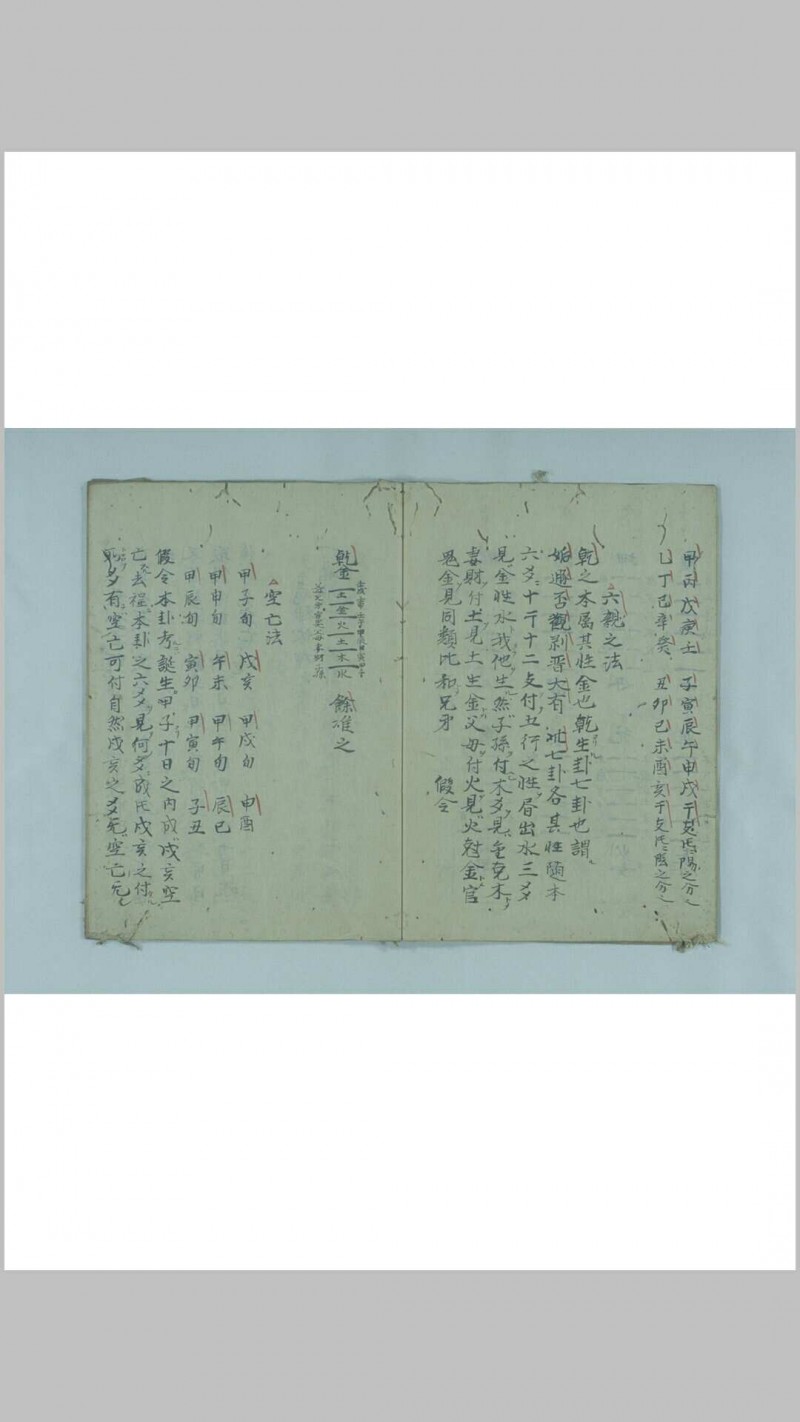 甲丙戊庚壬 子寅辰午申戌干支氏陽之分
乙丁己辛癸 丑卯巳未酉亥干支氏陰之分
六親之法
乾之本属其性金也乾生卦七卦也謂
姤遯否觀剥晋大有此七卦各其性随本
六爻十干十二支付五行之性
見金性水我他生然子孫付木爻見金克木
妻財付土見土生金父母付火見火尅金官
鬼金見同類比和兄弟 假令
乾金 土 金 火 土 木 水 餘准之
空亡法
甲子旬 戌亥 甲戌旬 申酉
甲申旬 午未 甲午旬 辰巳
甲辰旬 寅卯 甲寅旬 子丑
假令本卦考誕生甲子十日之内成戌亥空
亡去程本卦之六爻見何爻成氏戌亥之付
爻有空亡可付自然戌亥之爻空亡